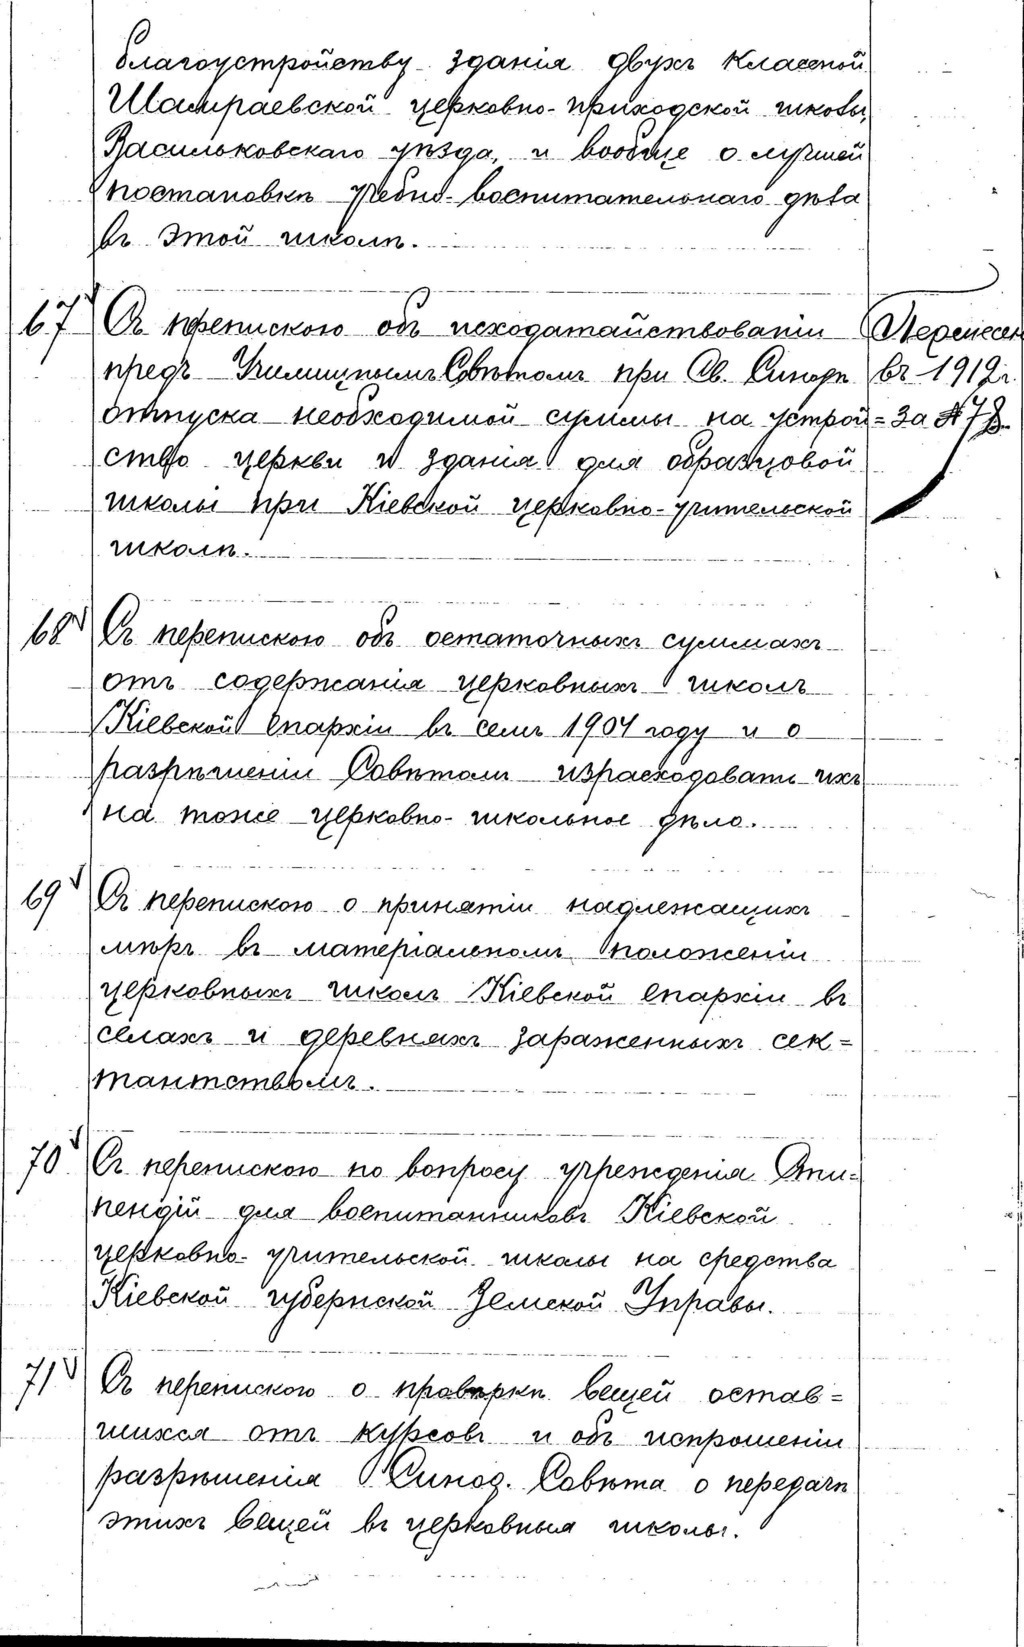 благоустройству зданія двухъ классной
Шамраевской церковно-приходской школы,
Васильковскаго уѣзда, и вообще о лучшей
постановкѣ учебно-воспитательнаго дѣла
въ этой школѣ.
67 Съ перепискою объ исходатайствованіи
предъ Училищнымъ Совѣтомъ при Св. Синодѣ
отпуска необходимой суммы на устрой=
ство церкви и зданія для образцовой
школы при Кіевской церковно-учительской
школѣ.
Перенесен
въ 1912 г.
за № 78.
68 Съ перепискою объ остаточныхъ суммахъ
отъ содержанія церковныхъ школъ
Кіевской епархіи въ семъ 1904 году и о
разрѣшеніи Совѣтомъ израсходовать ихъ
на тоже церковно-школьное дѣло.
69 Съ перепискою о принятіи надлежащихъ
мѣръ въ матеріальномъ положеніи
церковныхъ школъ Кіевской епархіи въ
селахъ и деревняхъ зараженныхъ сек=
тантствомъ.
70 Съ перепискою по вопросу учрежденія Сти=
пендій для воспитанниковъ Кіевской
церковно-учительской школы на средства
Кіевской губернской Земской Управы.
71 Съ перепискою о провѣркѣ вещей остав=
шихся отъ курсовъ и объ испрошеніи
разрѣшенія Синод. Совѣта о передачѣ
этихъ вещей въ церковныя школы.